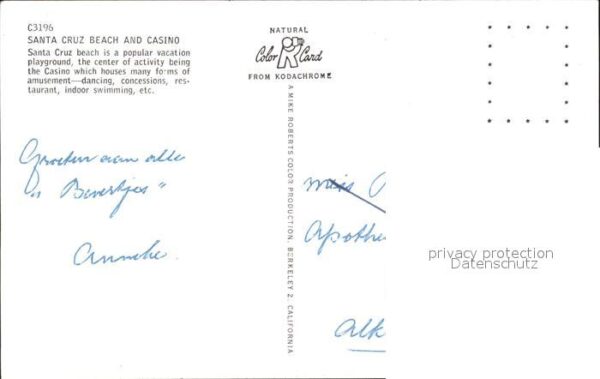 C3196
SANTA CRUZ BEACH AND CASINO
Santa Cruz beach is a popular vacation
playground, the center of activity being
the Casino which houses many forms of
amusement—dancing, concessions, res-
taurant, indoor swimming, etc.
NATURAL
Color Card
FROM KODACHROME
A MIKE ROBERTS COLOR PRODUCTION, BERKELEY 2, CALIFORNIA
Groeten aan alle
Anneke.
Apothe
Alk
privacy protection
Datenschutz